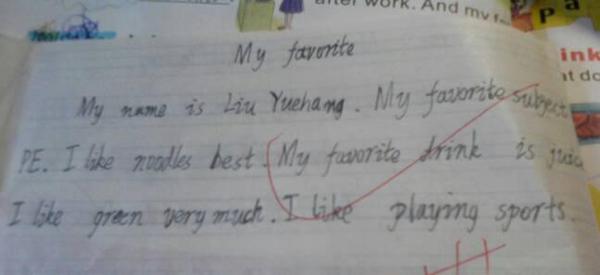 after work. And my f
P a
ink
at do
My favorite
My name is Liu Yuehang. My favorite subject
PE. I like noodles best. My favorite drink is juic
I like green very much. I like playing sports.